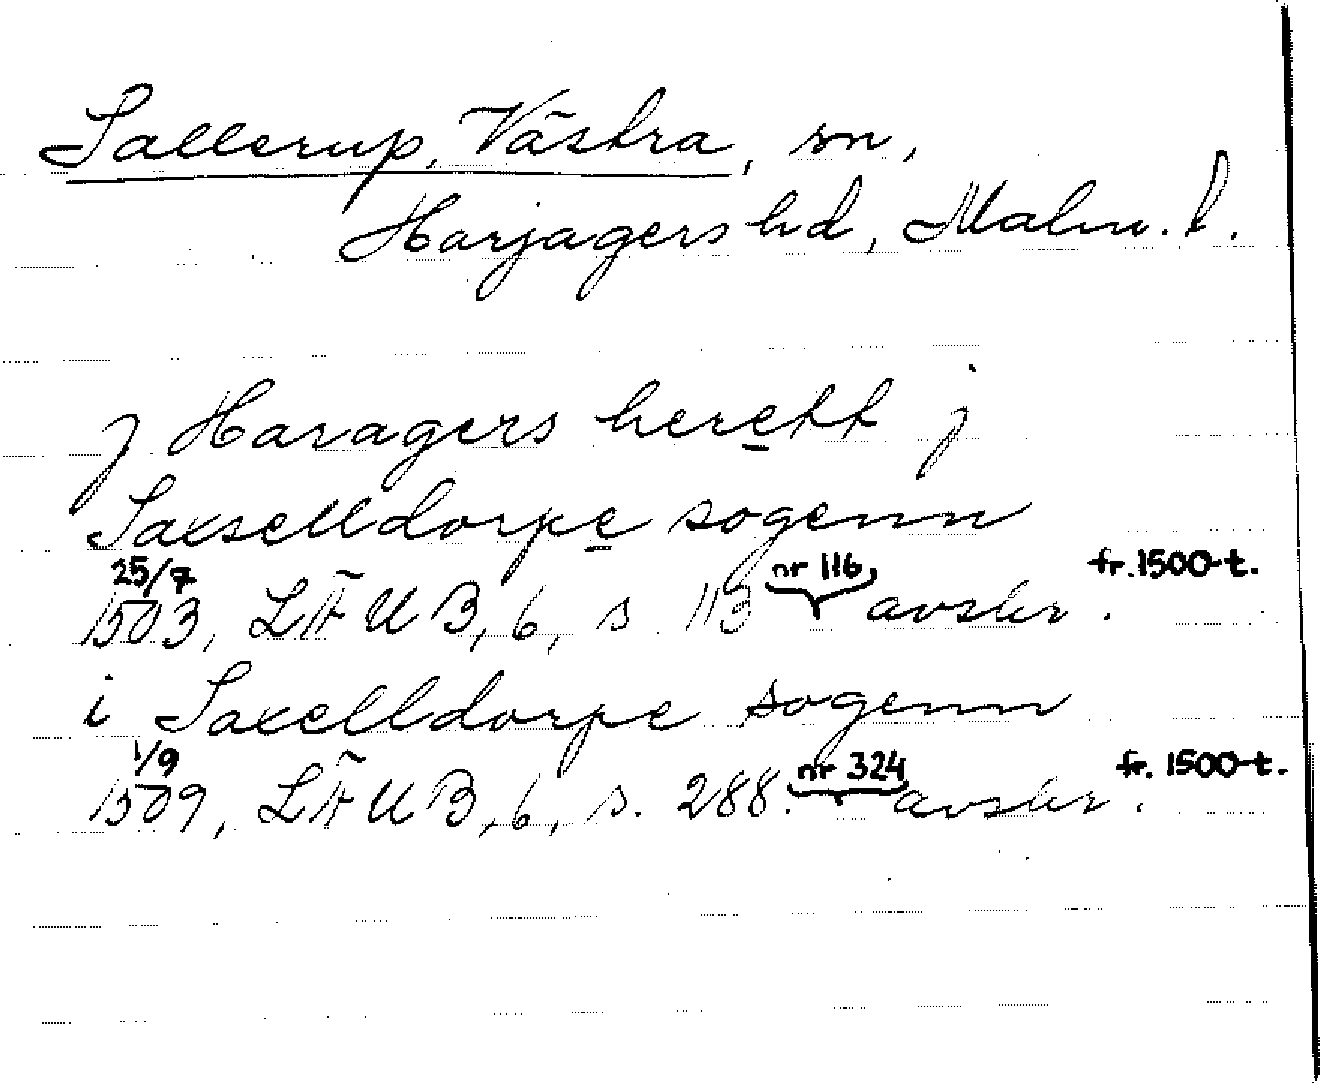 Sallerup, Västra, sn,
Harjagers hd, Malm. l.
j Haragers herett j
Saxselldorpe sogenn
25/7
1503, LÄUB, 6, s. 113 nr 116, avskr. fr. 1500-t.
i Saxelldorpe sogenn
1/9
1509, LÄUB, 6, s. 288. nr 324 avskr. fr. 1500-t.